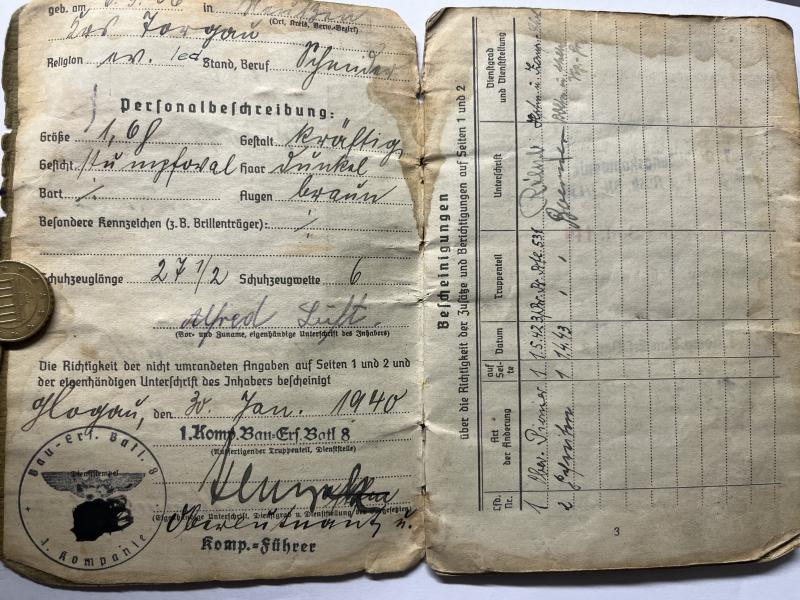 geb. am
in
(Ort, Kreis, Verw.-Bezirk)
Torgau
Religion ev. led Stand, Beruf Schneider
Personalbeschreibung:
Größe 1,68 Gestalt kräftig
Gesicht stumpfoval Haar dunkel
Bart ⁒ Augen braun
Besondere Kennzeichen (z.B. Brillenträger): ⁒
Schuhzeuglänge 27 1/2 Schuhzeugweite 6
Alfred
(Vor- und Zuname, eigenhändige Unterschrift des Inhabers)
Die Richtigkeit der nicht umrandeten Angaben auf Seiten 1 und 2 und
der eigenhändigen Unterschrift des Inhabers bescheinigt
Glogau, den 30. Jan. 1940
1.Komp.Bau-Ers.Batl 8
(Ausfertigender Truppenteil, Dienststelle)
(Eigenhändige Unterschrift, Dienstgrad u. Dienststellung des Vorgesetzten)
Oberleutnant u.
Komp.=Führer
Bau-Ers. Batl. 8
Dienststempel
1. Kompanie
Bescheinigungen
über die Richtigkeit der Zusätze und Berichtigungen auf Seiten 1 und 2
Lfd. Nr.
Art der Änderung
auf Seite
Datum
Truppenteil
Unterschrift
Dienstgrad und Dienststellung
1 Ober Pionier 1 1.5.42
2 Gefreiter 1 1.4.43 " "
3